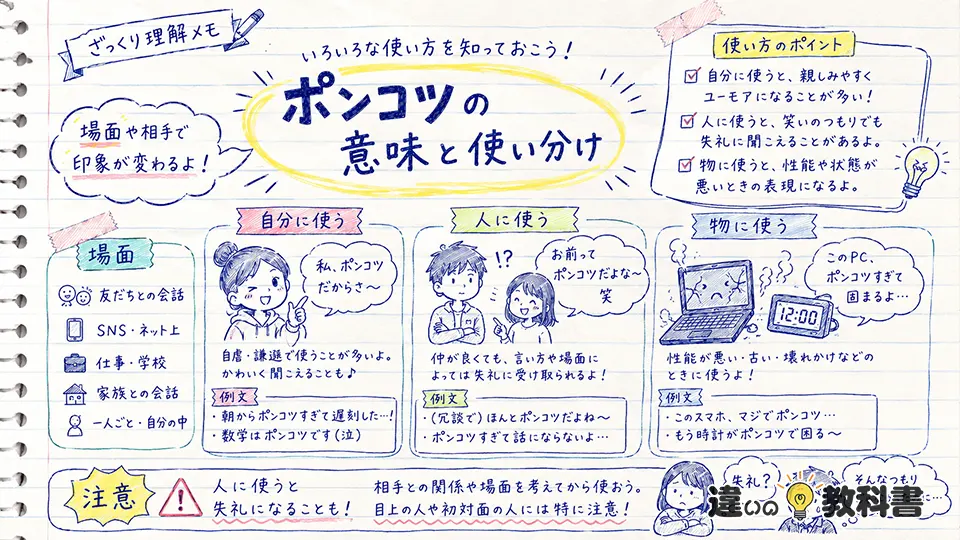 ざっくり理解メモ
いろいろな使い方を知っておこう！
ポンコツの
意味と使い分け
場面や相手で
印象が変わるよ！
使い方のポイント
自分に使うと、親しみやすく
ユーモアになることが多い！
人に使うと、笑いのつもりでも
失礼に聞こえることがあるよ。
物に使うと、性能や状態が
悪いときの表現になるよ。
場面
友だちとの会話
SNS・ネット上
仕事・学校
家族との会話
一人ごと・自分の中
自分に使う
私、ポンコツ
だからさ〜
自虐・謙遜で使うことが多いよ。
かわいく聞こえることも♪
例文
・朝からポンコツすぎて遅刻した…!
・数学はポンコツです（泣）
人に使う
!?
お前って
ポンコツだよな〜
笑
仲が良くても、言い方や場面に
よっては失礼に受け取られるよ！
例文
・（冗談で）ほんとポンコツだよね〜
・ポンコツすぎて話にならないよ…
物に使う
このPC、
ポンコツすぎて
固まるよ…
12:00
性能が悪い・古い・壊れかけなどの
ときに使うよ！
例文
・このスマホ、マジでポンコツ…
・もう時計がポンコツで困る〜
注意
人に使うと
失礼になることも！
相手との関係や場面を考えてから使おう。
目上の人や初対面の人には特に注意！
失礼？
そんなつもり
違いの教科書